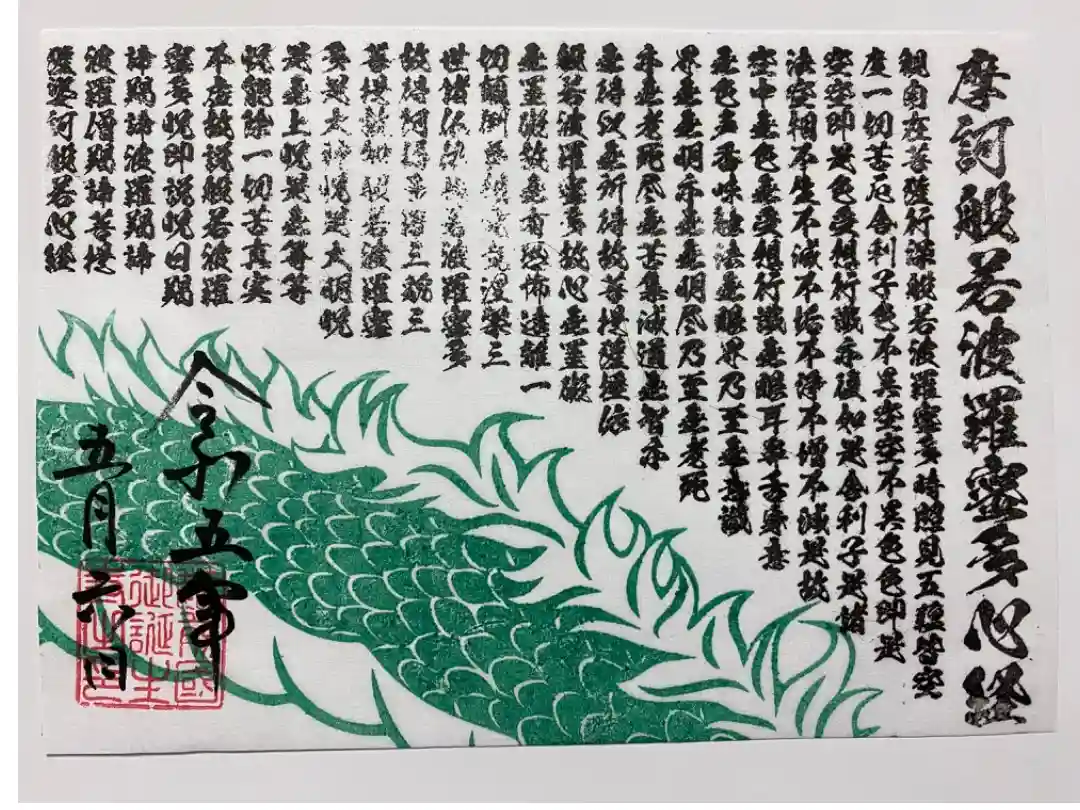 摩訶般若波羅蜜多心経
観自在菩薩行深般若波羅蜜多時照見五蘊皆空
度一切苦厄舎利子色不異空空不異色色即是
空空即是色受想行識亦復如是舎利子是諸
法空相不生不滅不垢不浄不増不減是故
空中無色無受想行識無眼耳鼻舌身意
無色声香味触法無眼界乃至無意識
界無無明亦無無明尽乃至無老死
亦無老死尽無苦集滅道無智亦
無得以無所得故菩提薩埵依
般若波羅蜜多故心無罣礙
無罣礙故無有恐怖遠離一
切顛倒夢想究竟涅槃三
世諸仏依般若波羅蜜多
故得阿耨多羅三藐三
菩提故知般若波羅蜜
多是大神呪是大明呪
是無上呪是無等等
呪能除一切苦真実
不虚故説般若波羅
蜜多呪即説呪曰羯
諦羯諦波羅羯諦
波羅僧羯諦菩提
薩婆訶般若心経
令和五年
五月六日
國
御誕生